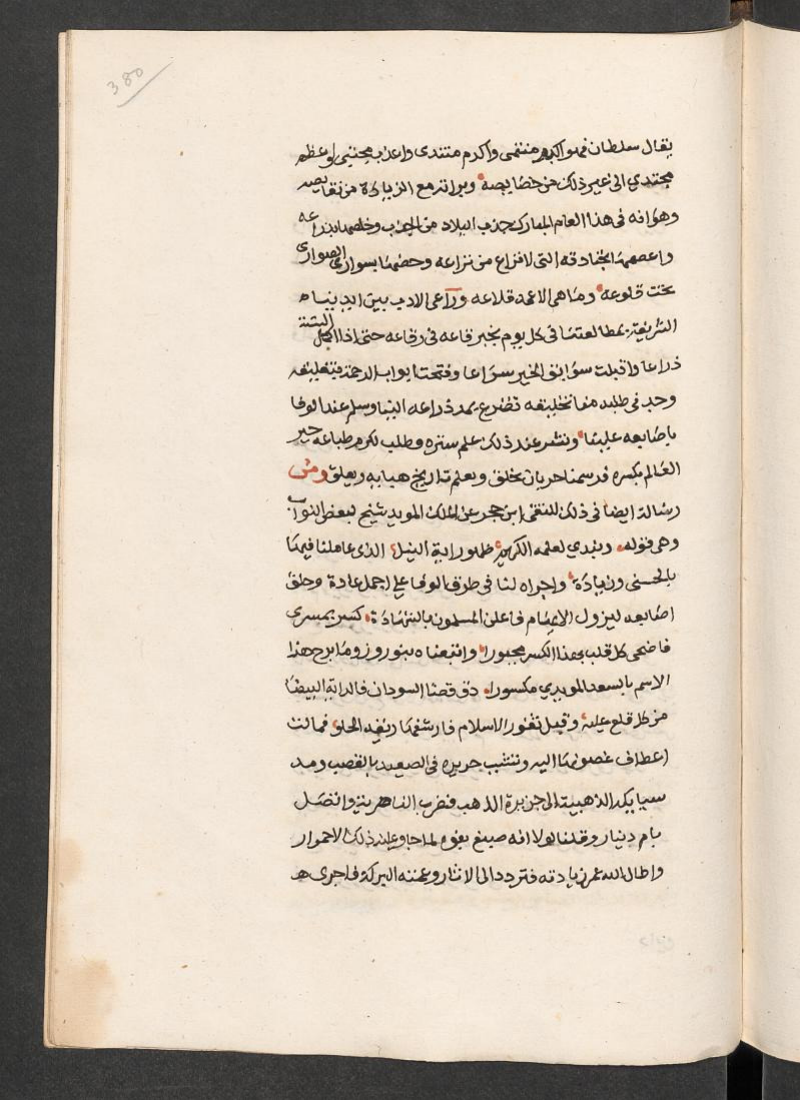 380
يقال سلطان فهو اكرم منتمى واكرم منتدى واعذب مجتنى واعظم
مجتدي الى غير ذلك من خصايصه وبراته مع الزيادة من نقايصه
وهو انه فى هذا العام المبارك جذب البلاد من الجدب وخلصها بذراعه
واعصمها بخنادقه التى لا فراع من نزاعه وحصنها بسوارى الصوارى
تحت قلوعه وما هى الا عمد قلاعه وراعى الادب بين ايدينا
الشريفة بمطالعتنا فى كل يوم بخبر قاعه فى رقاعه حتى اذا اكمل الستة
ذراعا واقبلت سوابق الخير سراعا وفتحت ابواب الرحمة بتغليقه
وجد فى طلبه تضرع بمد ذراعه الينا وسلم عند الوفا
باصابعه علينا ونشر عند ذلك علم ستره وطلب لكرم طباعه جبر
العالم بكسره فرسمنا بان يخلق ويعلم تاريخ هنايه ويعلق ومن
رسالة ايضا فى ذلك للتقى ابن حجر عن الملك المويد شيخ لبعض النواب
وهى قوله ونبدي لعلمه الكريم ظهور اية النيل الذى عاملنا فيها
بالحسنى وزيادة واجراه لنا فى طرق الوفا على اجمل عادة وخلق
اصابعه ليزول الايهام فاعلن المسلمون بالشهادة كسر بمسرى
فاضحى كل قلب بهذا الكسر مجبورا واتبعناه بنوروز وما برح هذا
الاسم بالسعد المويدي مكسورا دق قفا السودان فالراية البيضا
من كل قلع عليه وقبل ثغور الاسلام فارشفها ريقه الحلو فمالت
اعطاف غصونها اليه وتشبب خريره فى الصعيد بالقصب ومد
سبايكه الذهبية الى جزيرة الذهب فضرب الناصرية واتصل
بام دينار وقلنا لولا انه صبغ بقوة لما جا وعليه ذلك الاحمرار
واطال الله عمر زيادته فتردد الى الاثار وعمته البركة فاجرى